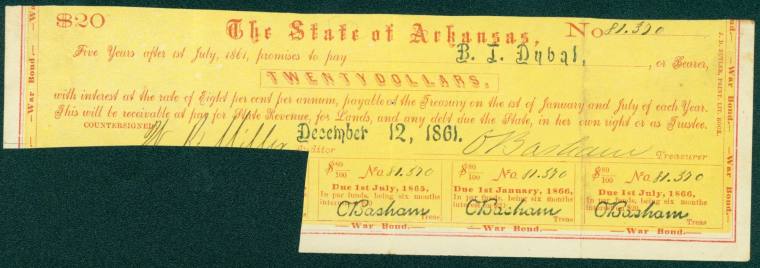 $20 The State of Arkansas, No 81.370
Five Years after 1st July, 1861, promises to pay B. T. Dubal, or Bearer,
TWENTY DOLLARS,
with interest at the rate of Eight per cent per annum, payable at the Treasury on the 1st of January and July of each Year.
This will be receivable at par for State Revenue, for Lands, and any debt due the State, in her own right or as Trustee.
COUNTERSIGNED W. R. Miller December 12, 1861. O Basham
Auditor Treasurer
War Bond.
War Bond.
War Bond.
J. D. BUTLER, PRINT, LIT. ROCK.
$ 80/100 No. 81.370
Due 1st July, 1865,
In par funds, being six months
O Basham
Treas
War Bond.
$ 80/100 No. 81.370
Due 1st January, 1866,
In par funds, being six months
O Basham
Treas
War Bond.
$ 80/100 No. 81.370
Due 1st July, 1866,
In par funds, being six months
O Basham
Treas
War Bond.